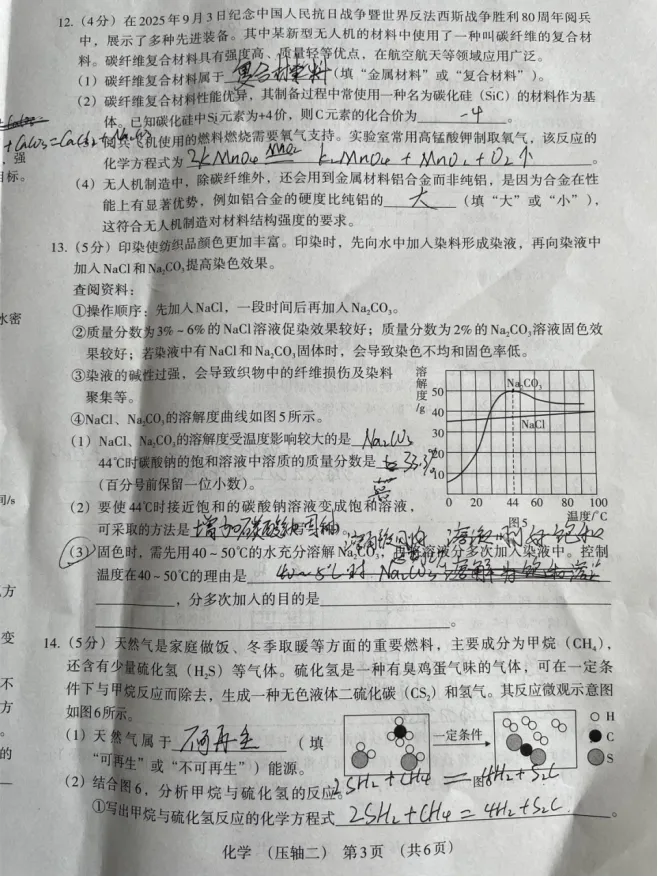 12.(4分)在2025年9月3日纪念中国人民抗日战争暨世界反法西斯战争胜利80周年阅兵
中,展示了多种先进装备。其中某新型无人机的材料中使用了一种叫碳纤维的复合材
料。碳纤维复合材料具有强度高、质量轻等优点,在航空航天等领域应用广泛。
(1)碳纤维复合材料属于 复合材料 (填“金属材料”或“复合材料”)。
(2)碳纤维复合材料性能优异,其制备过程中常使用一种名为碳化硅(SiC)的材料作为基
体。已知碳化硅中Si元素为+4价,则C元素的化合价为 -4 。
阅兵飞机使用的燃料燃烧需要氧气支持。实验室常用高锰酸钾制取氧气,该反应的
化学方程式为 2KMnO4 MnO2 K2MnO4 + MnO2 + O2↑ 。
(4)无人机制造中,除碳纤维外,还会用到金属材料铝合金而非纯铝,是因为合金在性
能上有显著优势,例如铝合金的硬度比纯铝的 大 (填“大”或“小”),
这符合无人机制造对材料结构强度的要求。
13.(5分)印染使纺织品颜色更加丰富。印染时,先向水中加入染料形成染液,再向染液中
加入NaCl和Na₂CO₃提高染色效果。
查阅资料:
①操作顺序:先加入NaCl,一段时间后再加入Na₂CO₃。
②质量分数为3%~6%的NaCl溶液促染效果较好;质量分数为2%的Na₂CO₃溶液固色效
果较好;若染液中有NaCl和Na₂CO₃固体时,会导致染色不均和固色率低。
③染液的碱性过强,会导致织物中的纤维损伤及染料
聚集等。
④NaCl、Na₂CO₃的溶解度曲线如图5所示。
(1)NaCl、Na₂CO₃的溶解度受温度影响较大的是 Na2CO3
44℃时碳酸钠的饱和溶液中溶质的质量分数是 33.3%
(百分号前保留一位小数)。
(2)要使44℃时接近饱和的碳酸钠溶液变成饱和溶液,
可采取的方法是 增加碳酸钠
溶解度/g
50
40
30
20
10
0 20 44 60 80 100
Na₂CO₃
NaCl
温度/℃
图5
(3)固色时,需先用40~50℃的水充分溶解Na₂CO₃,再将溶液分多次加入染液中。控制
温度在40~50℃的理由是
,分多次加入的目的是
。
14.(5分)天然气是家庭做饭、冬季取暖等方面的重要燃料,主要成分为甲烷(CH₄),
还含有少量硫化氢(H₂S)等气体。硫化氢是一种有臭鸡蛋气味的气体,可在一定条
件下与甲烷反应而除去,生成一种无色液体二硫化碳(CS₂)和氢气。其反应微观示意图
如图6所示。
(1)天然气属于 不可再生 (填
“可再生”或“不可再生”)能源。
一定条件
H
C
S
(2)结合图6,分析甲烷与硫化氢的反应。
2SH2 + CH4 = 4H2 + S2C
①写出甲烷与硫化氢反应的化学方程式 2SH2 + CH4 = 4H2 + S2C 。
化学 (压轴二) 第3页 (共6页)